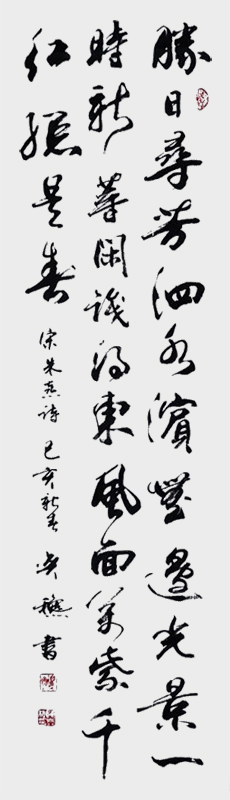 勝日尋芳泗水濱無邊光景一
時新等閑識得東風面萬紫千
紅總是春 宋朱熹詩 己亥新春 吳 書